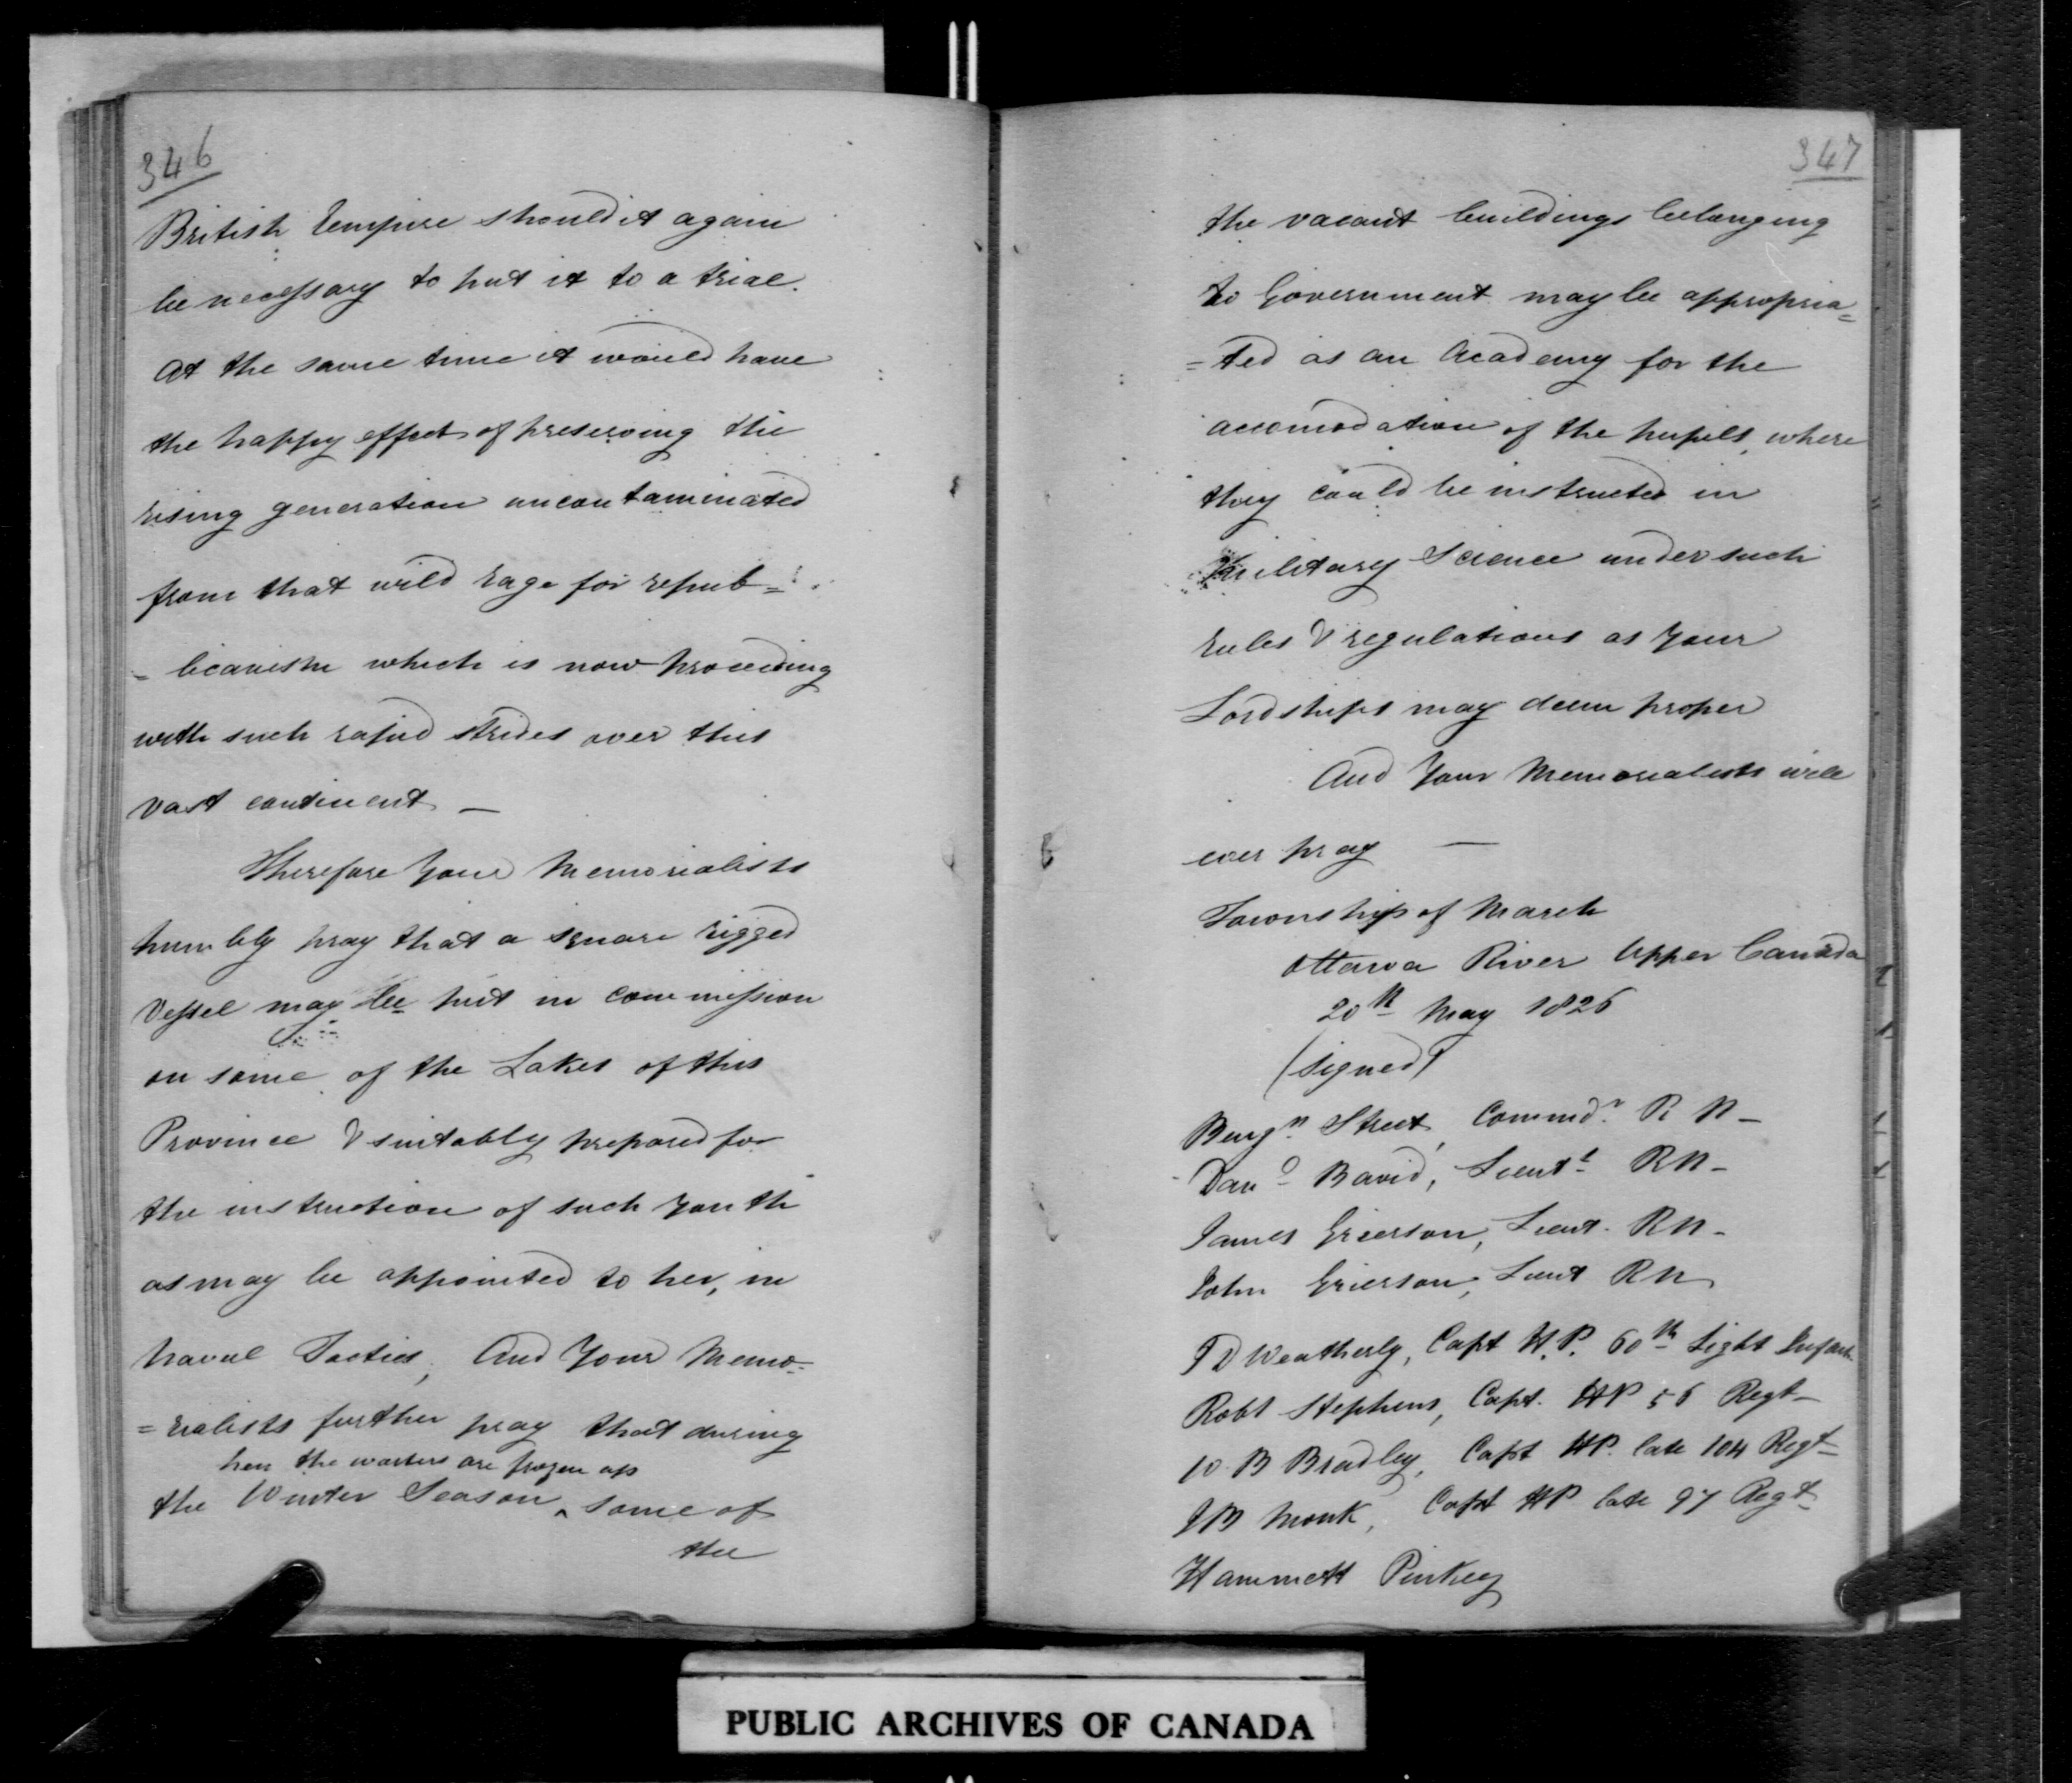 346
British Empire should it again
be necessary to put it to a trial.
At the same time it would have
the happy effect of preserving the
rising generation uncontaminated
from that wild rage for repub=
=licanism which is now proceeding
with such rapid strides over this
vast continent —
Therefore Your Memorialists
humbly pray that a square rigged
Vessel may be put in commission
on some of the Lakes of this
Province & suitably prepared for
the instruction of such Youth
as may be appointed to her, in
Naval Tactics, And Your Memo=
=rialists further pray that during
hen the waters are frozen up
the Winter Season ^ some of
the
347
the vacant buildings belonging
to Government may be appropria=
=ted as an Academy for the
accomodation of the pupils, where
they could be instructed in
Military Science under such
rules & regulations as Your
Lordships may deem proper
And Your Memorialists will
ever pray —
Township of March
Ottawa River Upper Canada
20th May 1826
(signed)
Benjn. Street, Commdr. R N –
Danl. Baird, Lieutt. RN –
James Grierson, Lieut. RN –
John Grierson, Lieut RN
T D Weatherly, Capt H.P. 60th Light Infant.
Robt Stephens, Capt. HP 56 Regt –
W. B Bradley, Capt HP. late 104 Regt
J B Monk, Capt HP late 97 Regt
Hammett Pinkey
PUBLIC ARCHIVES OF CANADA